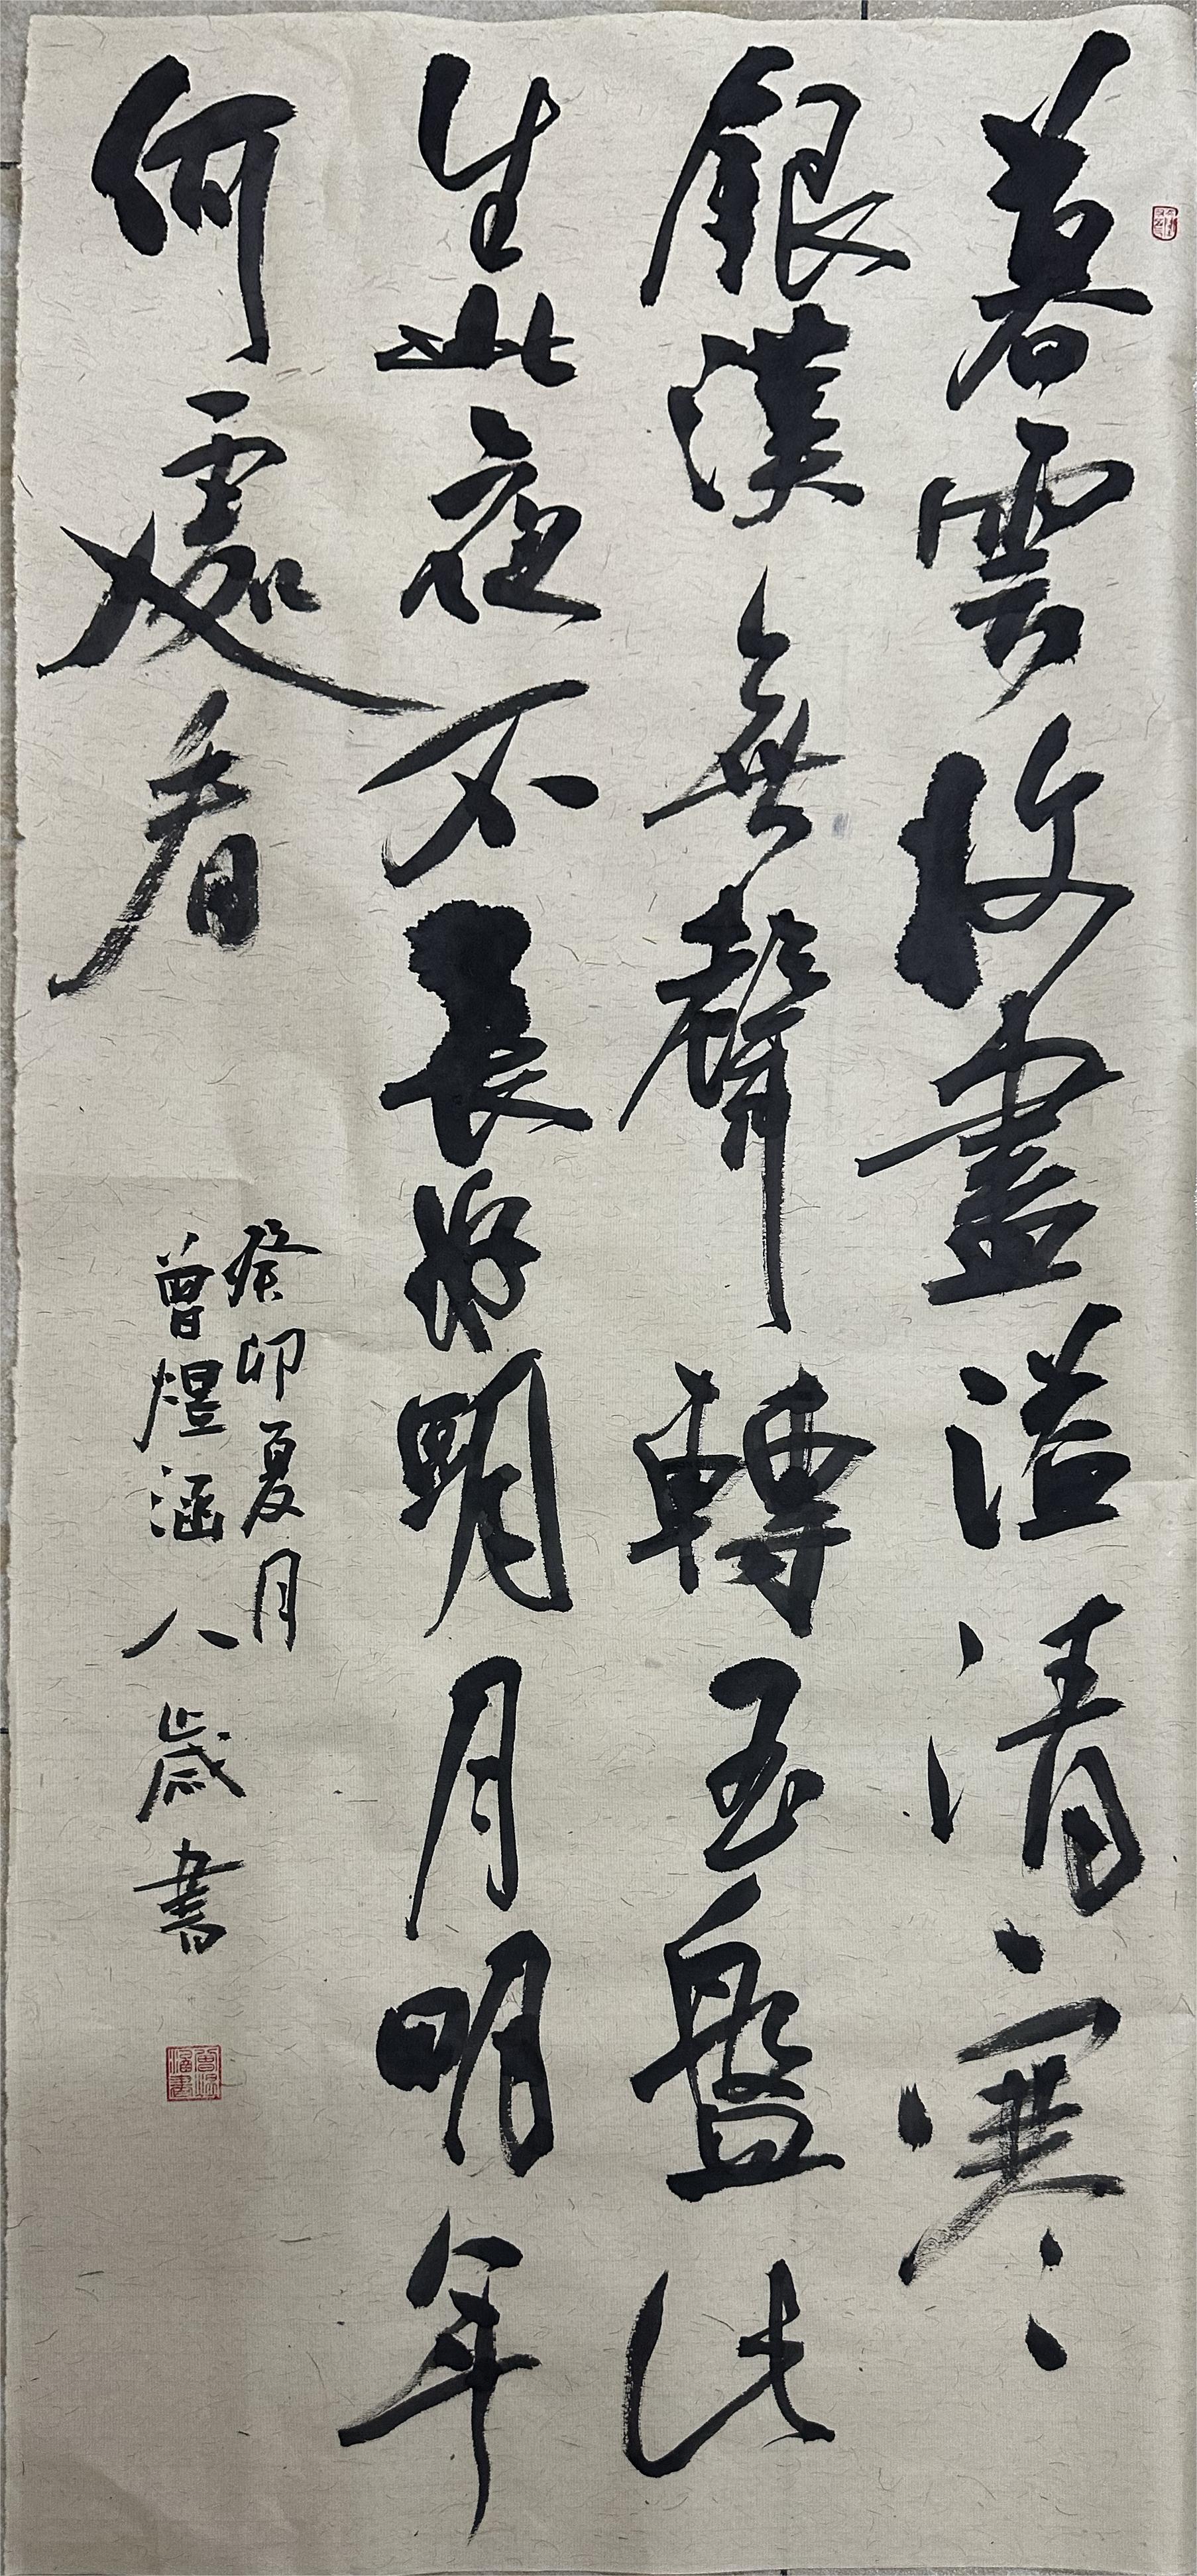 暮雲收盡溢清寒
銀漢無聲轉玉盤此
生此夜不長好明月明年
何處看
癸卯夏月
曾煜涵八歲書